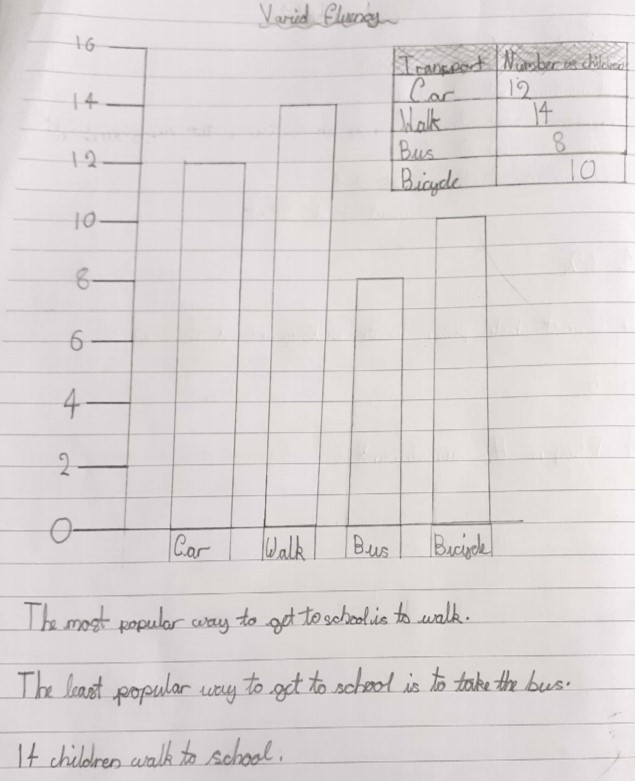 Varid fluency
16
14
12
10
8
6
4
2
0
Transport Number of children
Car 12
Walk 14
Bus 8
Bicycle 10
Car Walk Bus Bicycle
The most popular way to get to school is to walk.
The least popular way to get to school is to take the bus.
14 children walk to school.